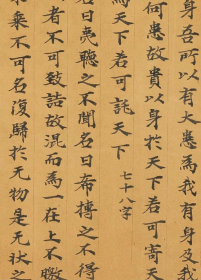 身吾所以有大患為我有身及我
何患故貴以身於天下若可寄天
為天下若可託天下 七十八字
名曰夷聽之不聞名曰希搏之不得
者不可致詰故混而為一在上不皦
乗不可名復歸於无物是无状之